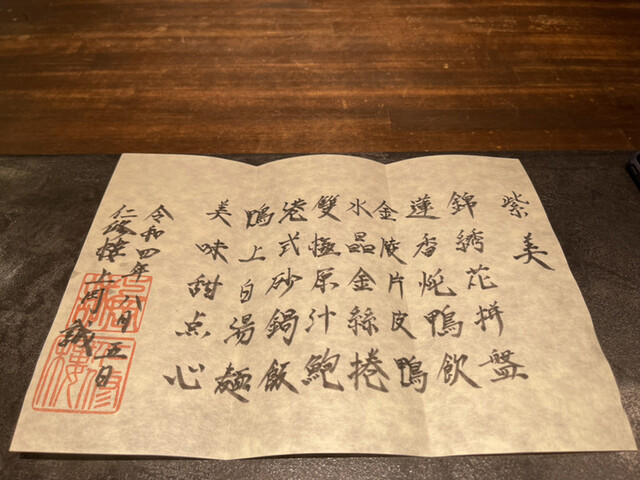 紫美
錦綉花拼盤
蓮香炖鴨飲
金陵片皮鴨
水晶金絲捲
雙極原汁鮑
港式砂鍋飯
鴨上白湯麺
美味甜点心
令和四年八月五日
仁修樓上岡誠